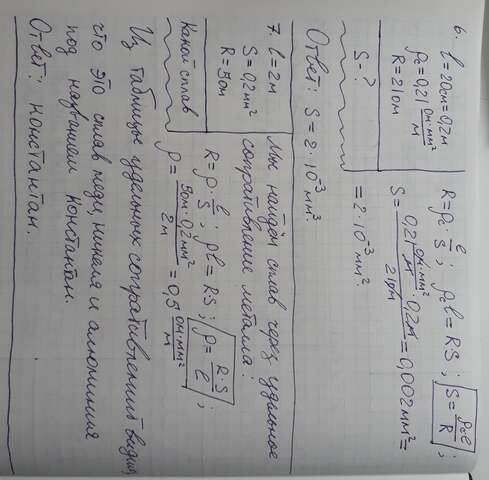 6. l = 20см = 0,2м
ρ = 0,21 Ом·мм²/м
R = 21 Ом
S - ?
R = ρ · l/S; ρl = RS; S = ρl/R;
S = 0,21 Ом·мм²/м · 0,2м / 21 Ом = 0,002 мм² =
= 2·10⁻³ мм².
Ответ: S = 2·10⁻³ мм³.
7. l = 2м
S = 0,2 мм²
R = 5 Ом
Какой сплав
Мы найдём сплав через удельное
сопротивление металла:
R = ρ · l/S; ρl = RS; ρ = R·S/l;
ρ = 5 Ом · 0,2 мм² / 2м = 0,5 Ом·мм²/м
Из таблицы удельных сопротивлений видим,
что это сплав меди, никеля и алюминия
под названием константан.
Ответ: константан.